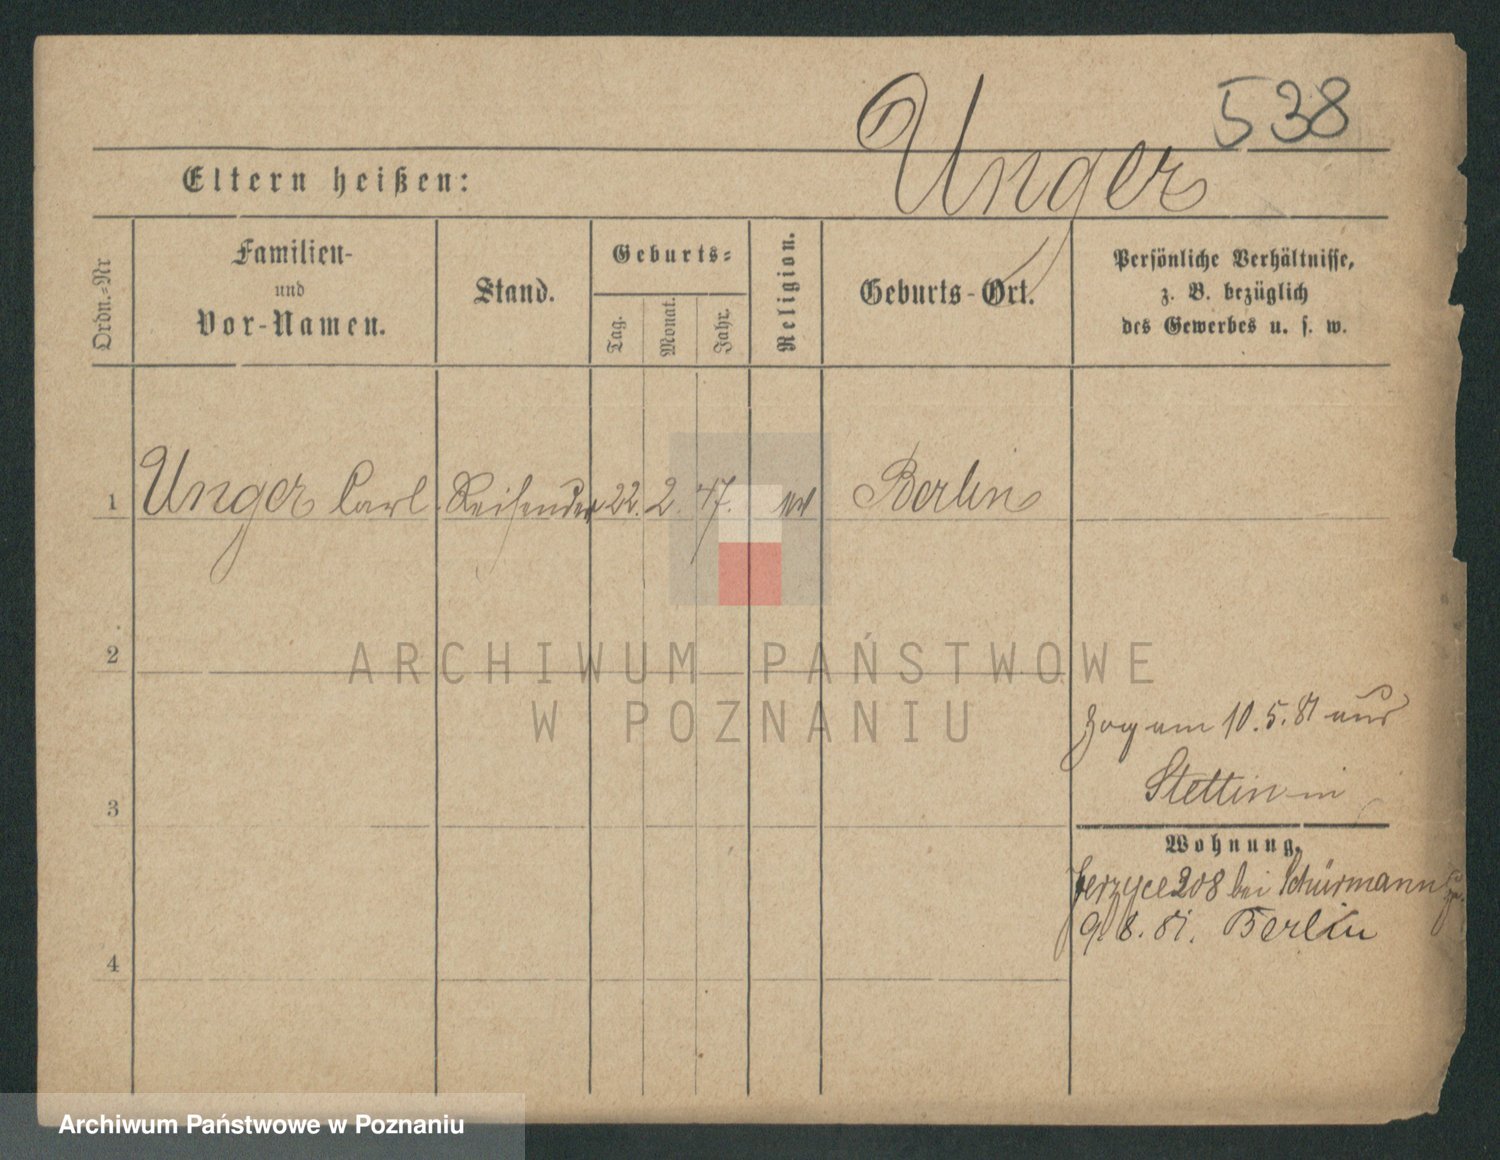 538
Unger
Eltern heißen:
Ordn.-Nr
Familien-
und
Vor-Namen.
Stand.
Geburts-
Tag.
Monat.
Jahr.
Religion.
Geburts-Ort.
Persönliche Verhältnisse,
z. B. bezüglich
des Gewerbes u. s. w.
1 Unger Carl Reisender 22. 2. 47. Berlin
2
3
4
Zog am 10.5.81 aus
Stettin
Wohnung.
Jerzyce 208 bei Schürmann
9.8.81. Berlin
ARCHIWUM PAŃSTWOWE
W POZNANIU
Archiwum Państwowe w Poznaniu